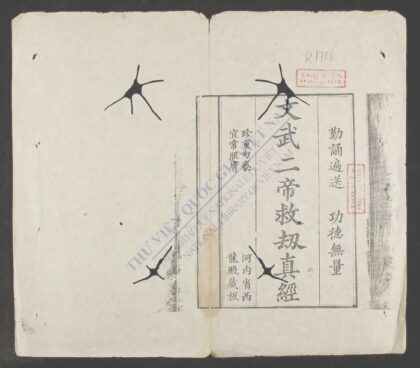 R.1708
THƯ VIỆN
勤誦遍送 功德無量
文武二帝救刼真經
珍重勿褻
宜常服膺
河内省西
龍殿藏板
THƯ VIỆN QUỐC GIA VIỆT NAM
NATIONAL LIBRARY OF VIETNAM